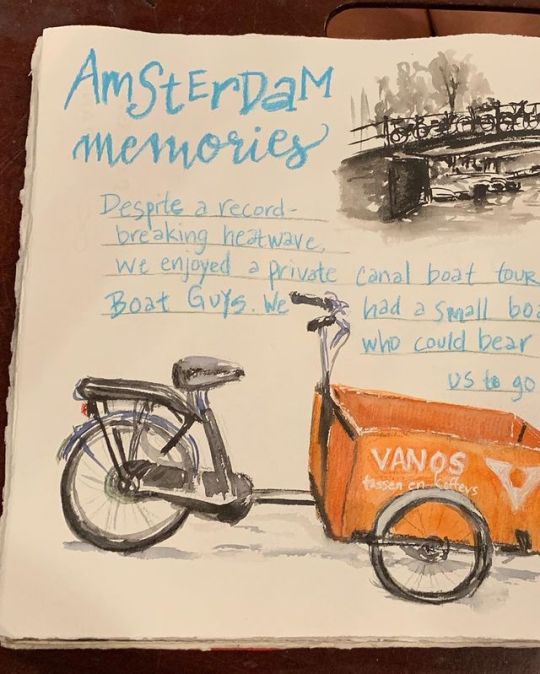 AmsterDam
memories
Despite a record-
breaking heatwave,
we enjoyed a private canal boat tour
Boat Guys. We had a small boa
who could bear
us to go
VANOS
tassen en koffers